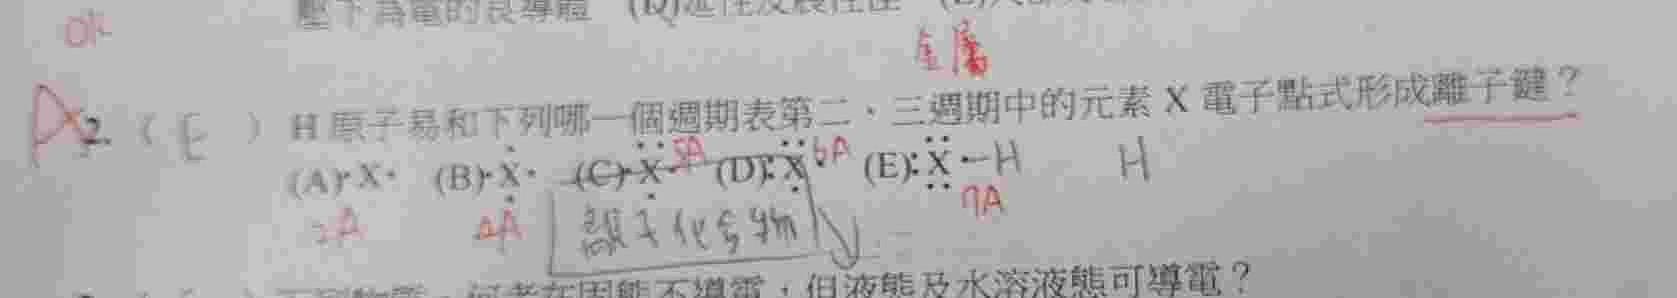 ok
壓下為電的良導體 (D)延性及展性佳
金屬
A 2. ( E ) H 原子易和下列哪一個週期表第二、三週期中的元素 X 電子點式形成離子鍵?
(A)·X· (B)·X· (C)·X· 5A (D):X· 6A (E):X·—H H
2A 4A 分子化合物 7A
何者在固態不導電,但液態及水溶液態可導電?